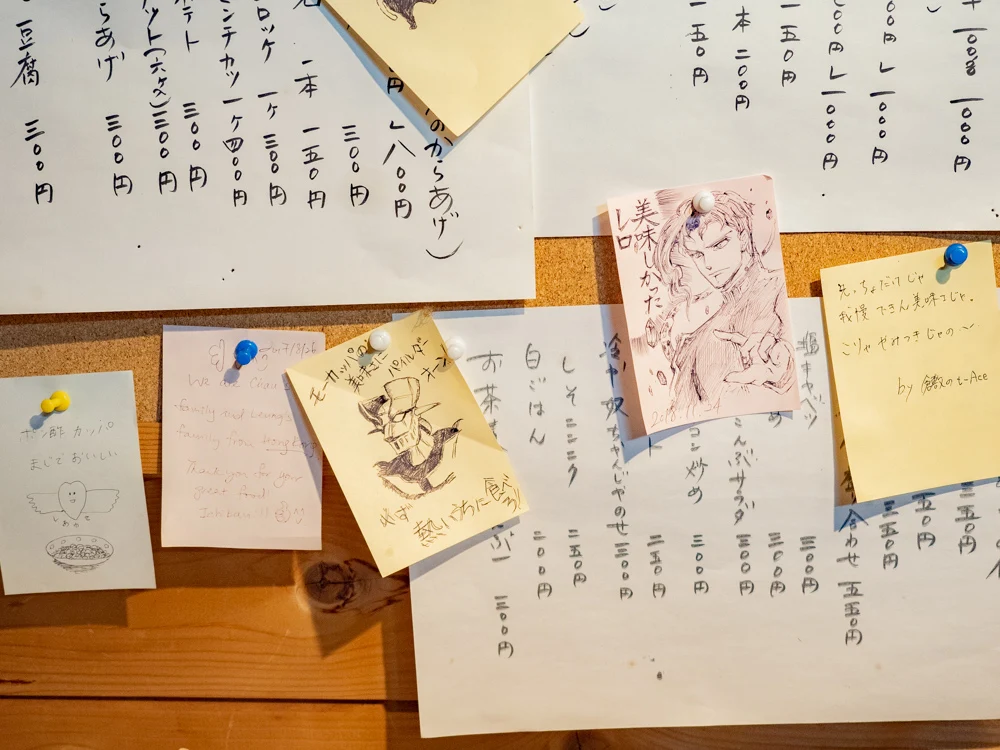 のからあげ)
円 〜 八〇〇円
三〇〇円
一本 一五〇円
ロッケ 一ケ 三〇〇円
ミンチカツ 一ケ 四〇〇円
テト 三〇〇円
ナゲット(六ケ入) 三〇〇円
らあげ 三〇〇円
豆腐 三〇〇円
一〇〇〇円
〜 一〇〇〇円
〜 一〇〇〇円
一五〇円
本 二〇〇円
一五〇円
美味しかった
レロ
2018.11.24
我慢できん美味さじゃ。
こりゃやみつきじゃの〜
by 倉敷のt-Ace
ポン酢 カッパ
まじでおいしい
しあわせ
We are Chau
family and Leung's
family from Hong Kong
Thank you for your
great food!
モーカッパの
美味さに
パイルダー
オン!
必ず
熱いうちに食べろ!
合わせ 五五〇円
塩キャベツ 三〇〇円
三〇〇円
こんぶサラダ 三〇〇円
コン炒め 三〇〇円
ト 二五〇円
冷や奴 ちゃんじゃのせ 三〇〇円
しそニンニク 二五〇円
白ごはん 二〇〇円
お茶 三〇〇円
三五〇円
五〇円
三五〇円